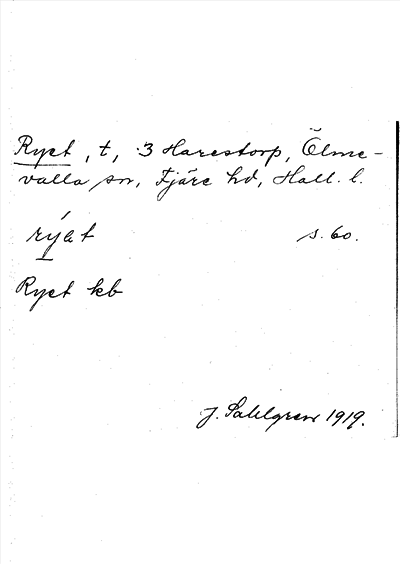 Ryet, t, 3 Harestorp, Ölme-
valla sn, Fjäre hd, Hall. l.
s. 60.
Ryet kb
J. Sahlgren 1919.